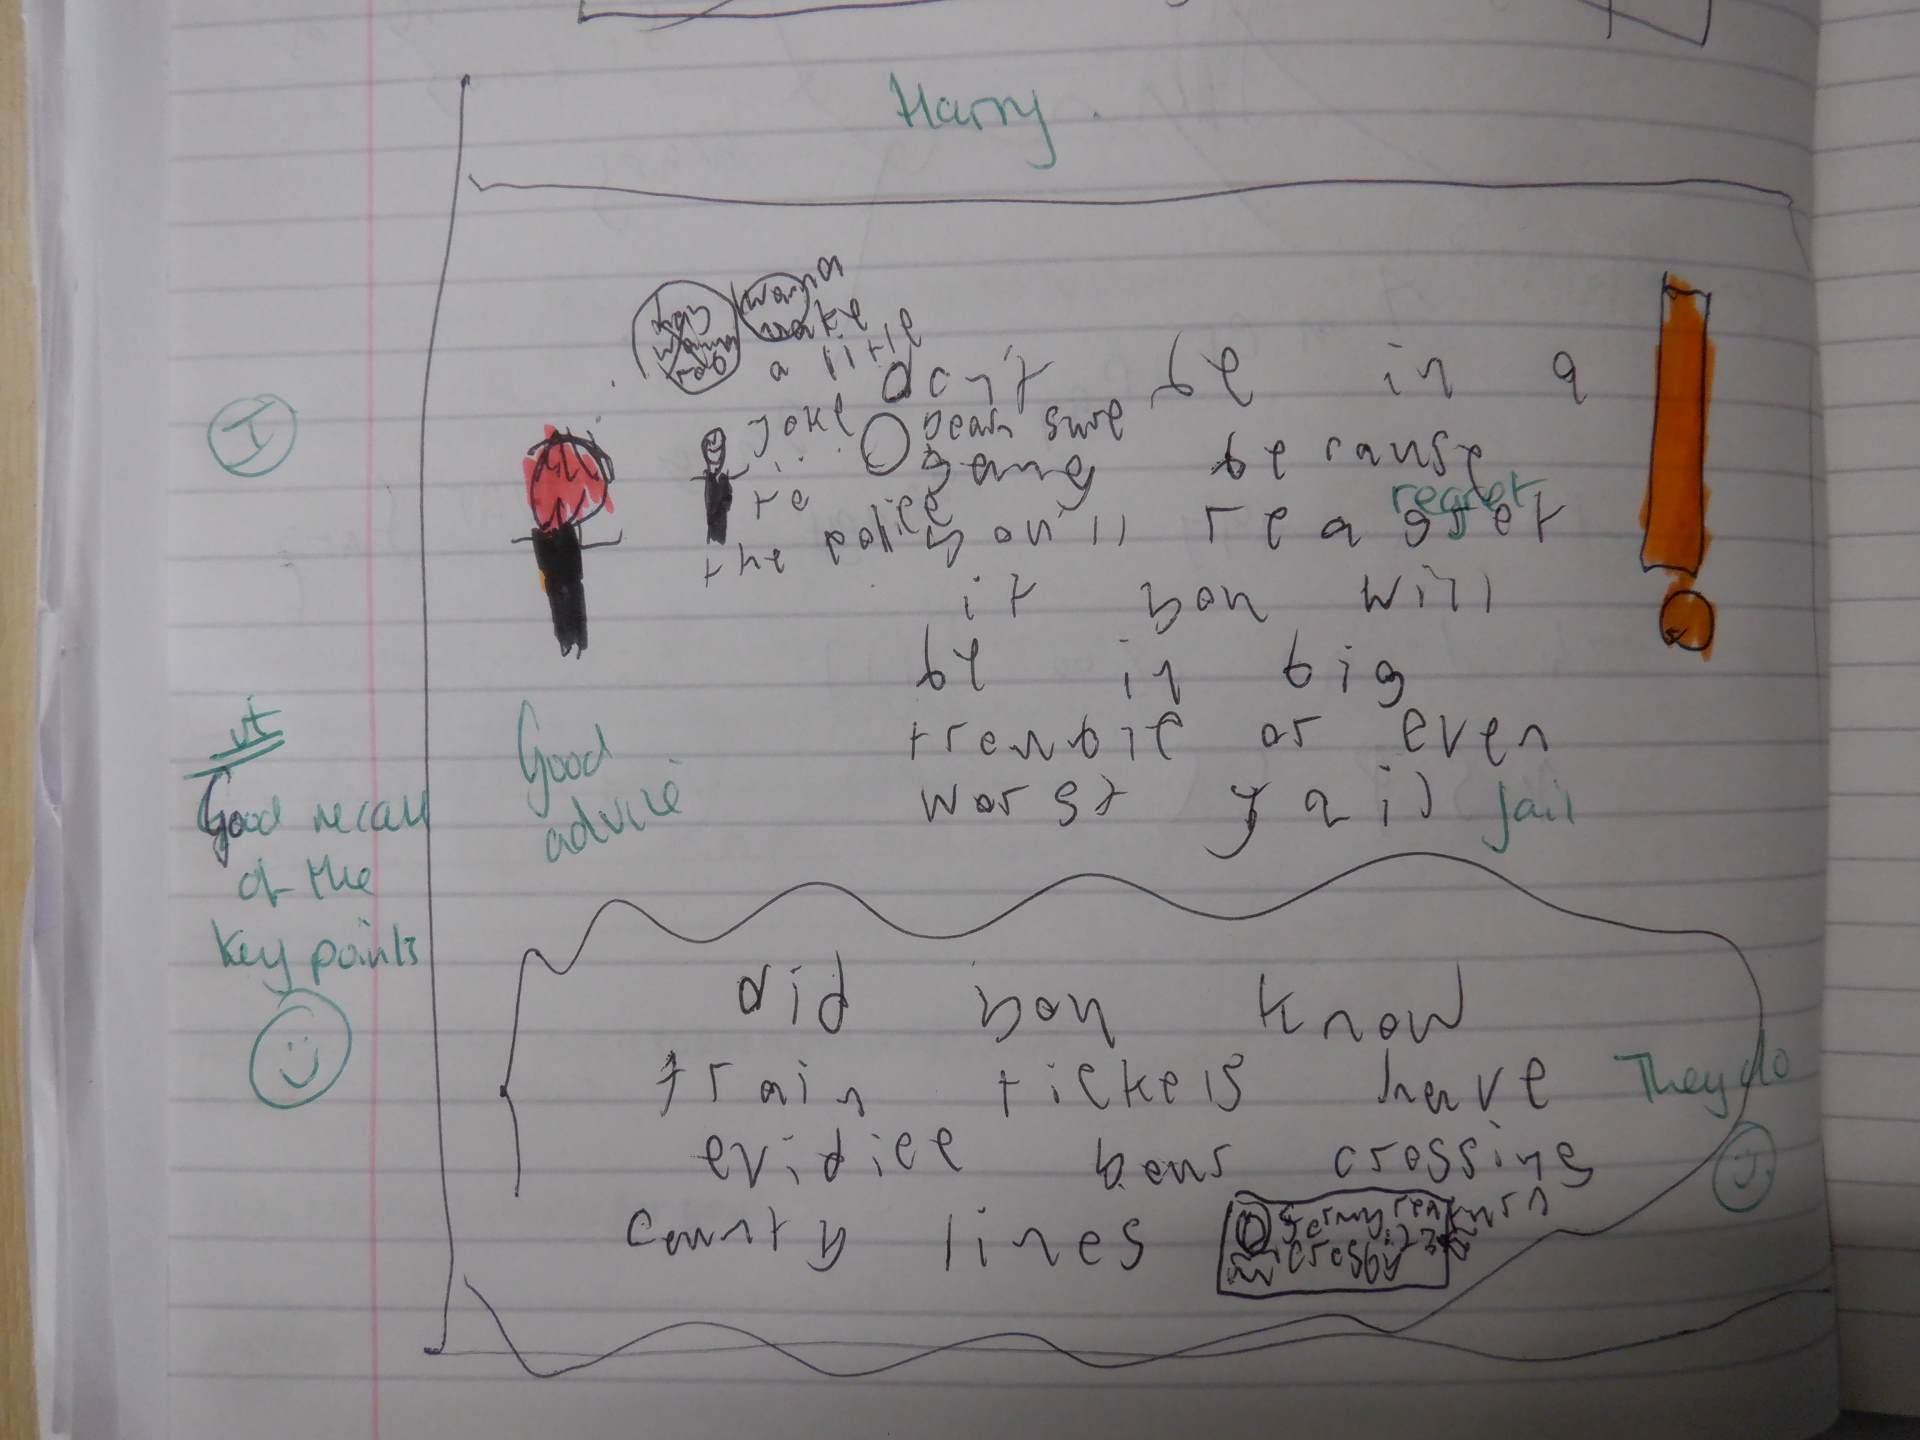 Harry.
wanna
make
a litle
joke
yeah sure
to
the police
I
don't be in a
gang because
regret
you'll reagret
it you will
be in big
trouble or even
worst yail jail
Good
advice
vf
Good recall
of the
key points
did you know
train tickets have
They do
evidice
crossing
county lines